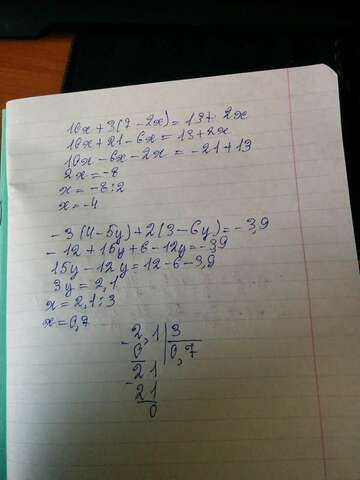 10x + 3(7 - 2x) = 13 + 2x
10x + 21 - 6x = 13 + 2x
10x - 6x - 2x = -21 + 13
2x = -8
x = -8:2
x = -4
-3(4-5y)+2(3-6y)=-3,9
-12+15y+6-12y=-3,9
15y-12y=12-6-3,9
3y = 2,1
x = 2,1:3
x = 0,7
- 2,1 | 3
0 | 0,7
21
- 21
0